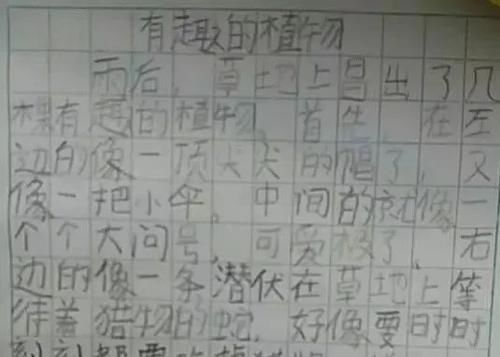 有趣的植物
雨后,草地上冒出了几
棵有趣的植物,首先,在左
边的像一顶尖尖的帽子,又
像一把小伞,中间的就像一
个个大问号,可爱极了,右
边的像一条潜伏在草地上等
待着猎物的蛇,好像要时时
刻刻都要